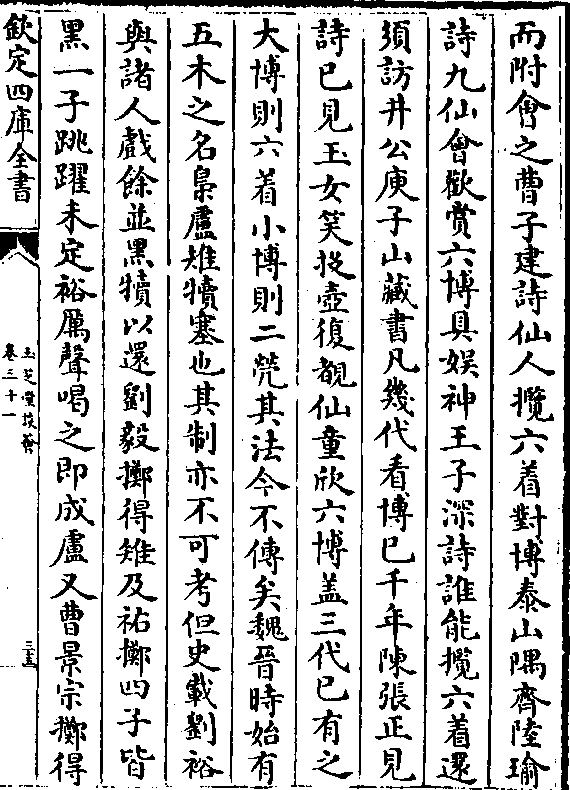 而附會之曹子建詩仙人攬六着對博泰山隅齊陸瑜
詩九仙會歡賞六博具娛神王子深詩誰能攬六着還
須訪井公庾子山藏書凡幾代看博已千年陳張正見
詩已見玉女笑投壺復覩仙童欣六博盖三代已有之
大博則六着小博則二焭其法今不傳矣魏晉時始有
五木之名梟盧雉犢塞也其制亦不可考但史載劉裕
與諸人戲餘並黑犢以還劉毅擲得雉及裕擲四子皆
黑一子跳躍未定裕厲聲喝之即成盧又曹景宗擲得
欽定四庫全書
卷三十一
玉芝堂談薈
三五